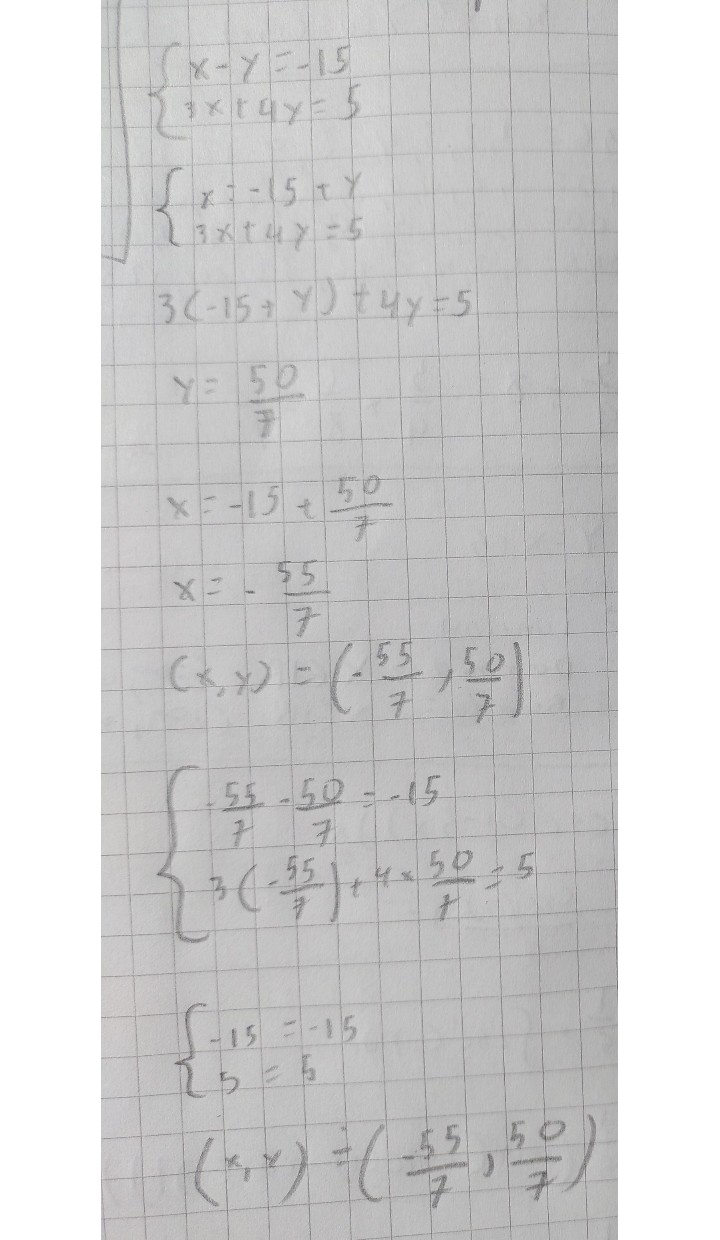 x - y = -15
3x + 4y = 5
x = -15 + y
3x + 4y = 5
3(-15 + y) + 4y = 5
y = 50/7
x = -15 + 50/7
x = - 55/7
(x, y) = (- 55/7, 50/7)
- 55/7 - 50/7 = -15
3(- 55/7) + 4 × 50/7 = 5
-15 = -15
5 = 5
(x, y) = (- 55/7, 50/7)